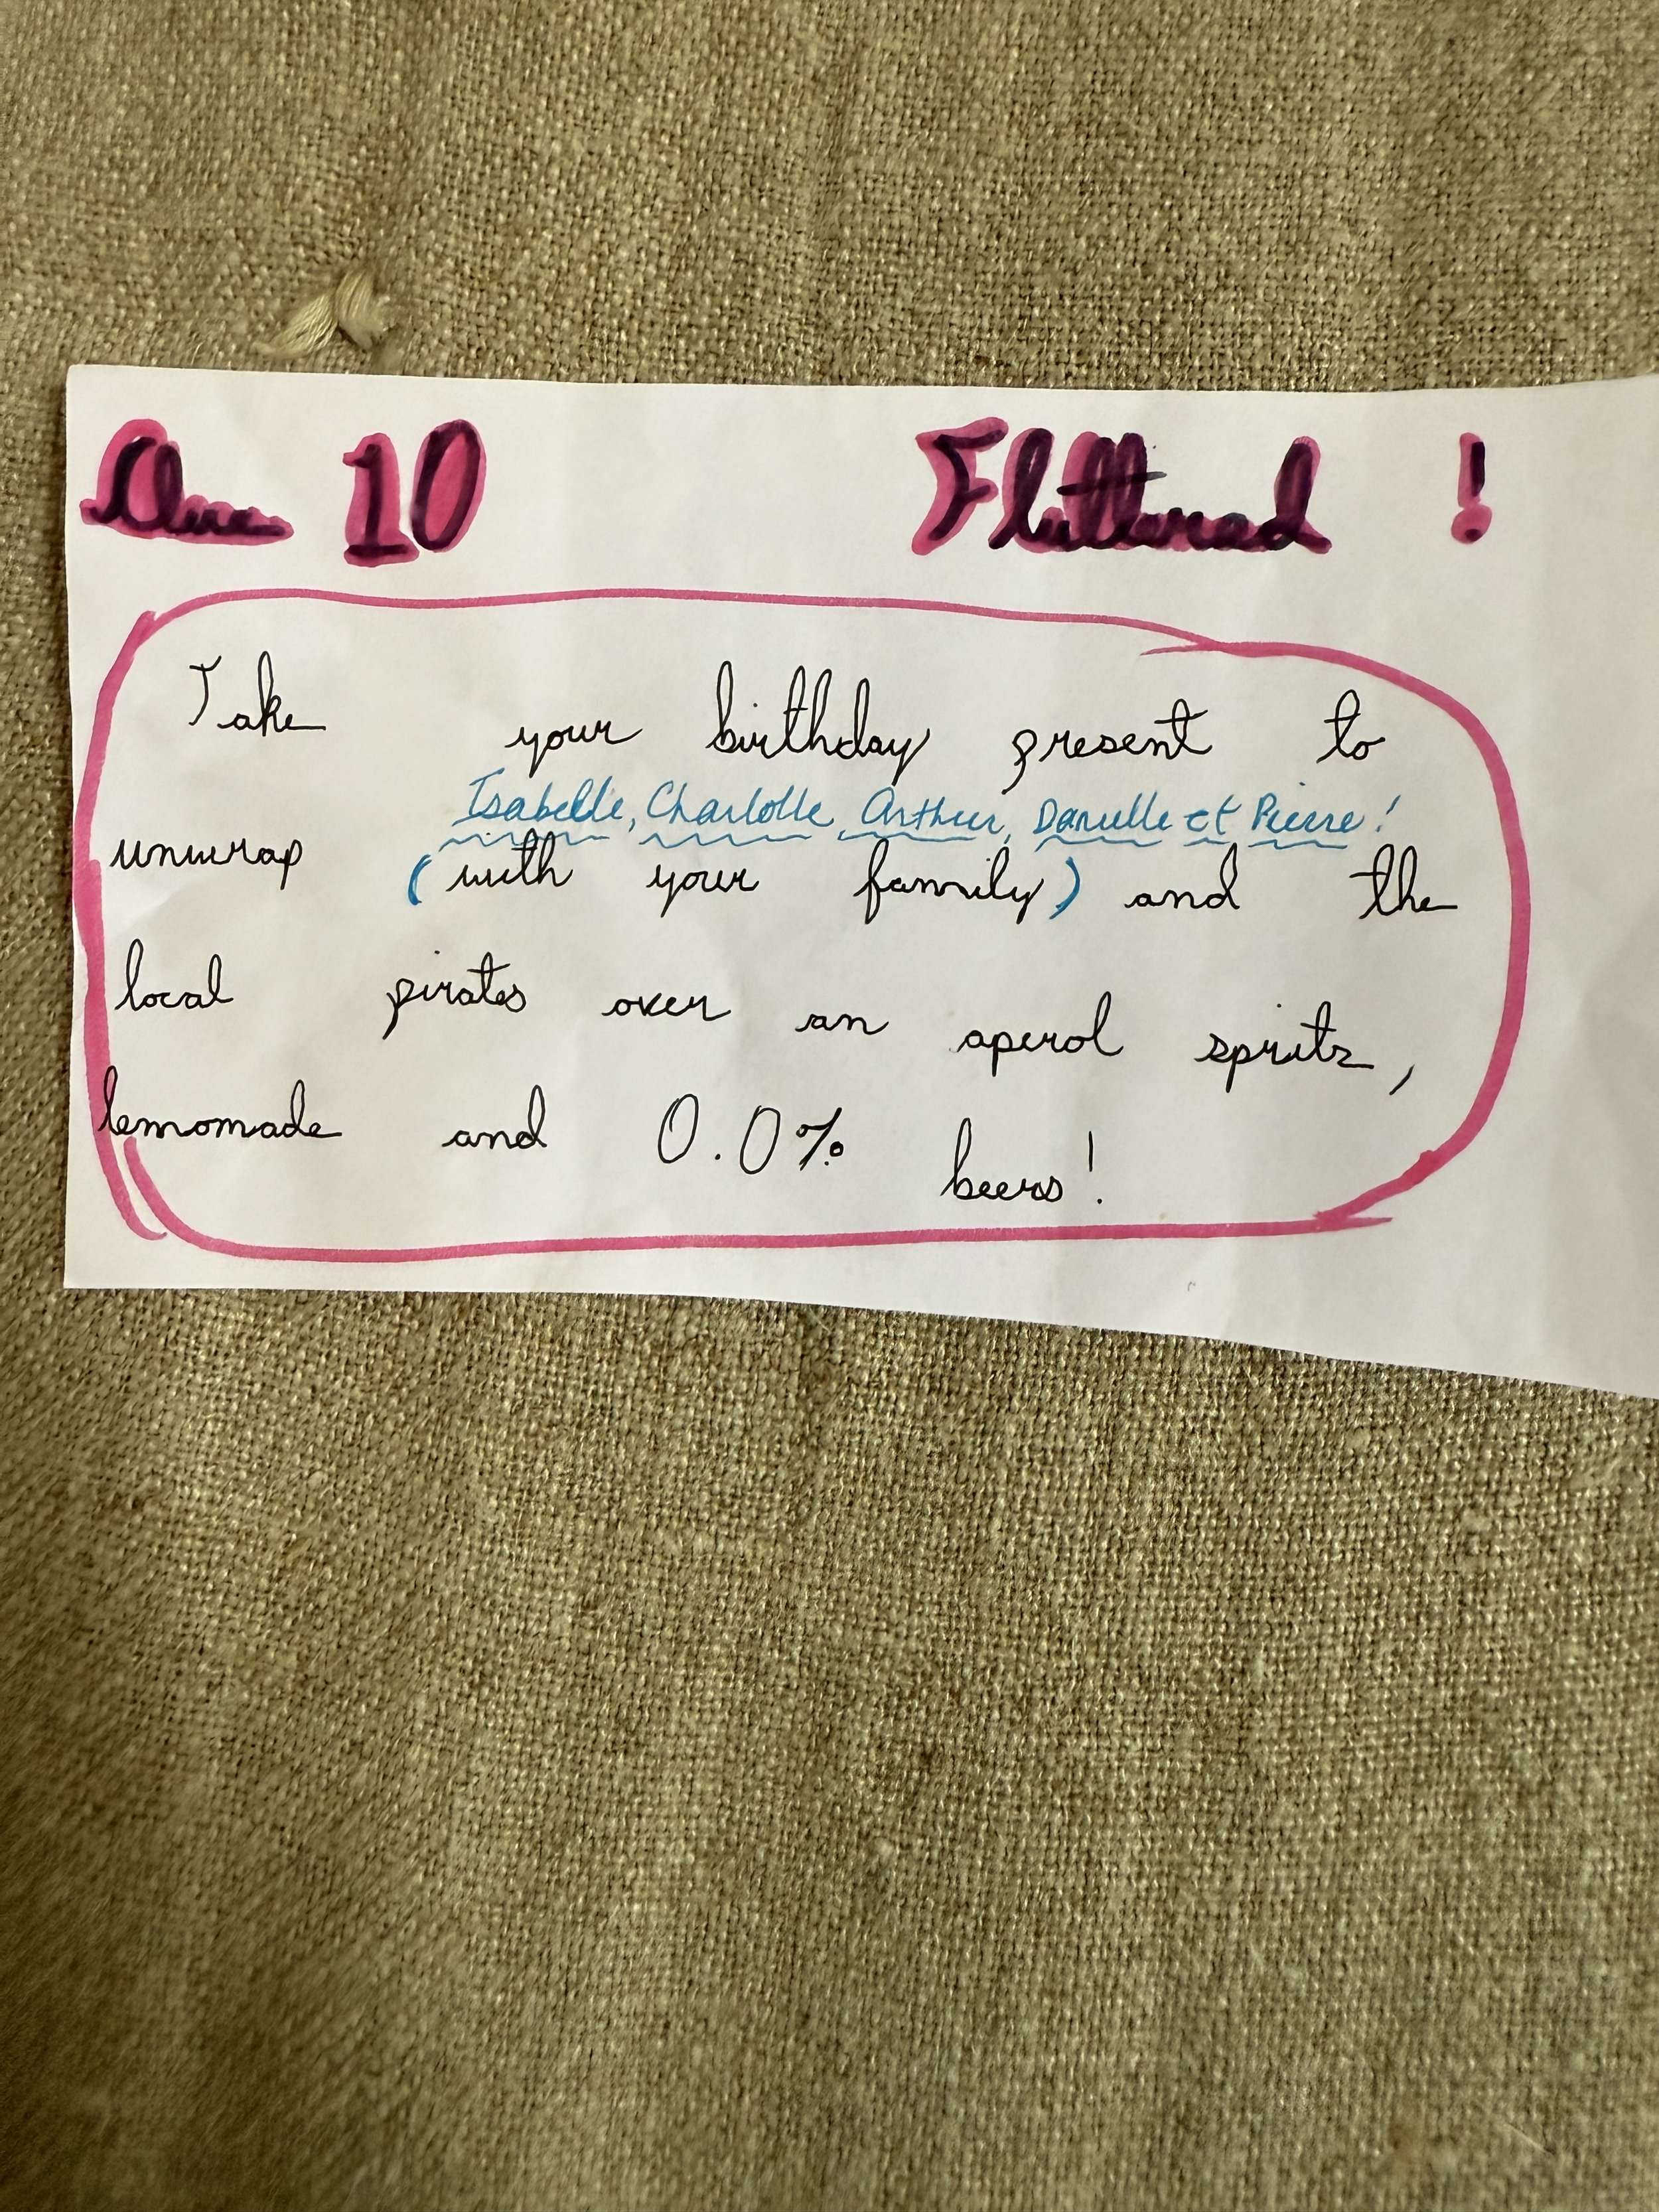 Clue 10 Fluttered !
Take your birthday present to
Isabelle, Charlotte, Arthur, Danielle et Pierre!
unwrap (with your family) and the
local pirates over an aperol spritz,
lemomade and 0.0% beers!